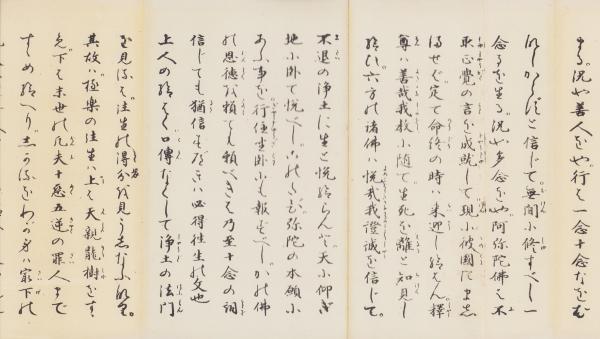 まる况や善人をや行は一念十念なをむ
なしからずと信じて無間に修すべし一
念なを生る况や多念をや阿弥陀佛は不
取正覺の言を成就して現に彼國にまし
ませば定て命終の時は来迎し給はん釋
尊は善哉我教に随て生死を離と知見し
給ひ六方の諸佛は悦哉我證誠を信じて
不退の浄土に生と悦給らんと天に仰ぎ
地に卧て悦べしこのたび弥陀の本願に
あふ事を行住坐卧にも報ずべしかの佛
の恩徳を頼ても頼べきは乃至十念の詞
信じても猶信ずべきは必得往生の文也
上人の給はく口傳なくして浄土の法門
を見るは往生の得分を見うしなふなり
其故は極楽の往生は上は天親龍樹をすゝ
め下は末世の凡夫十惡五逆の罪人まで
すゝめ給へりしかるをわが身は最下の